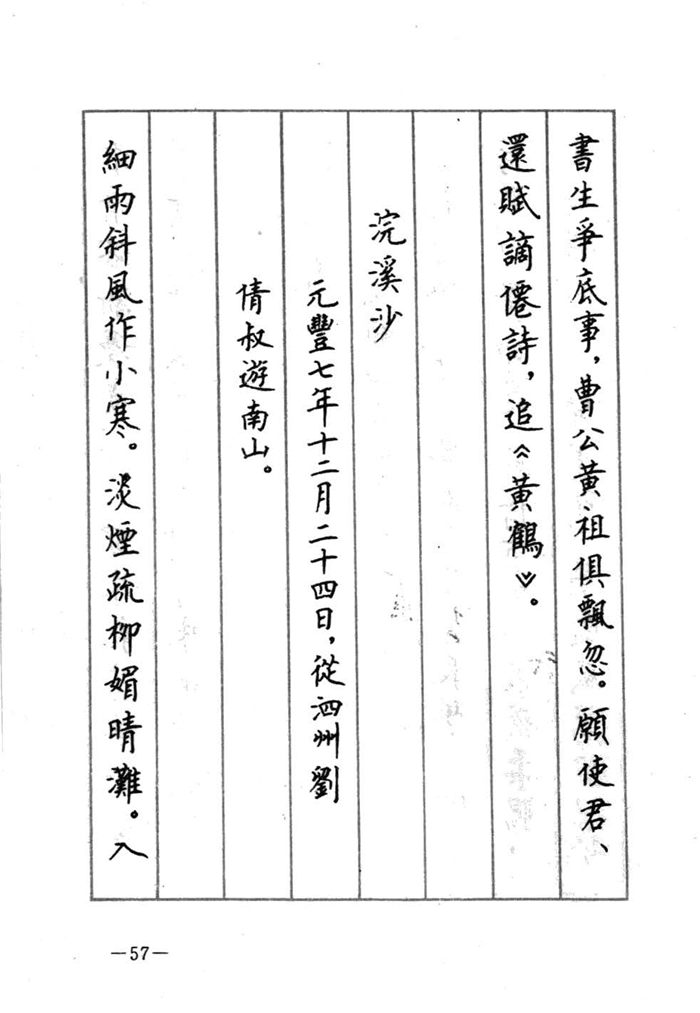 書生爭底事，曹公黃祖俱飄忽。願使君、
還賦謫僊詩，追《黃鶴》。
浣溪沙
元豐七年十二月二十四日，從泗州劉
倩叔遊南山。
細雨斜風作小寒。淡煙疏柳媚晴灘。入
—57—